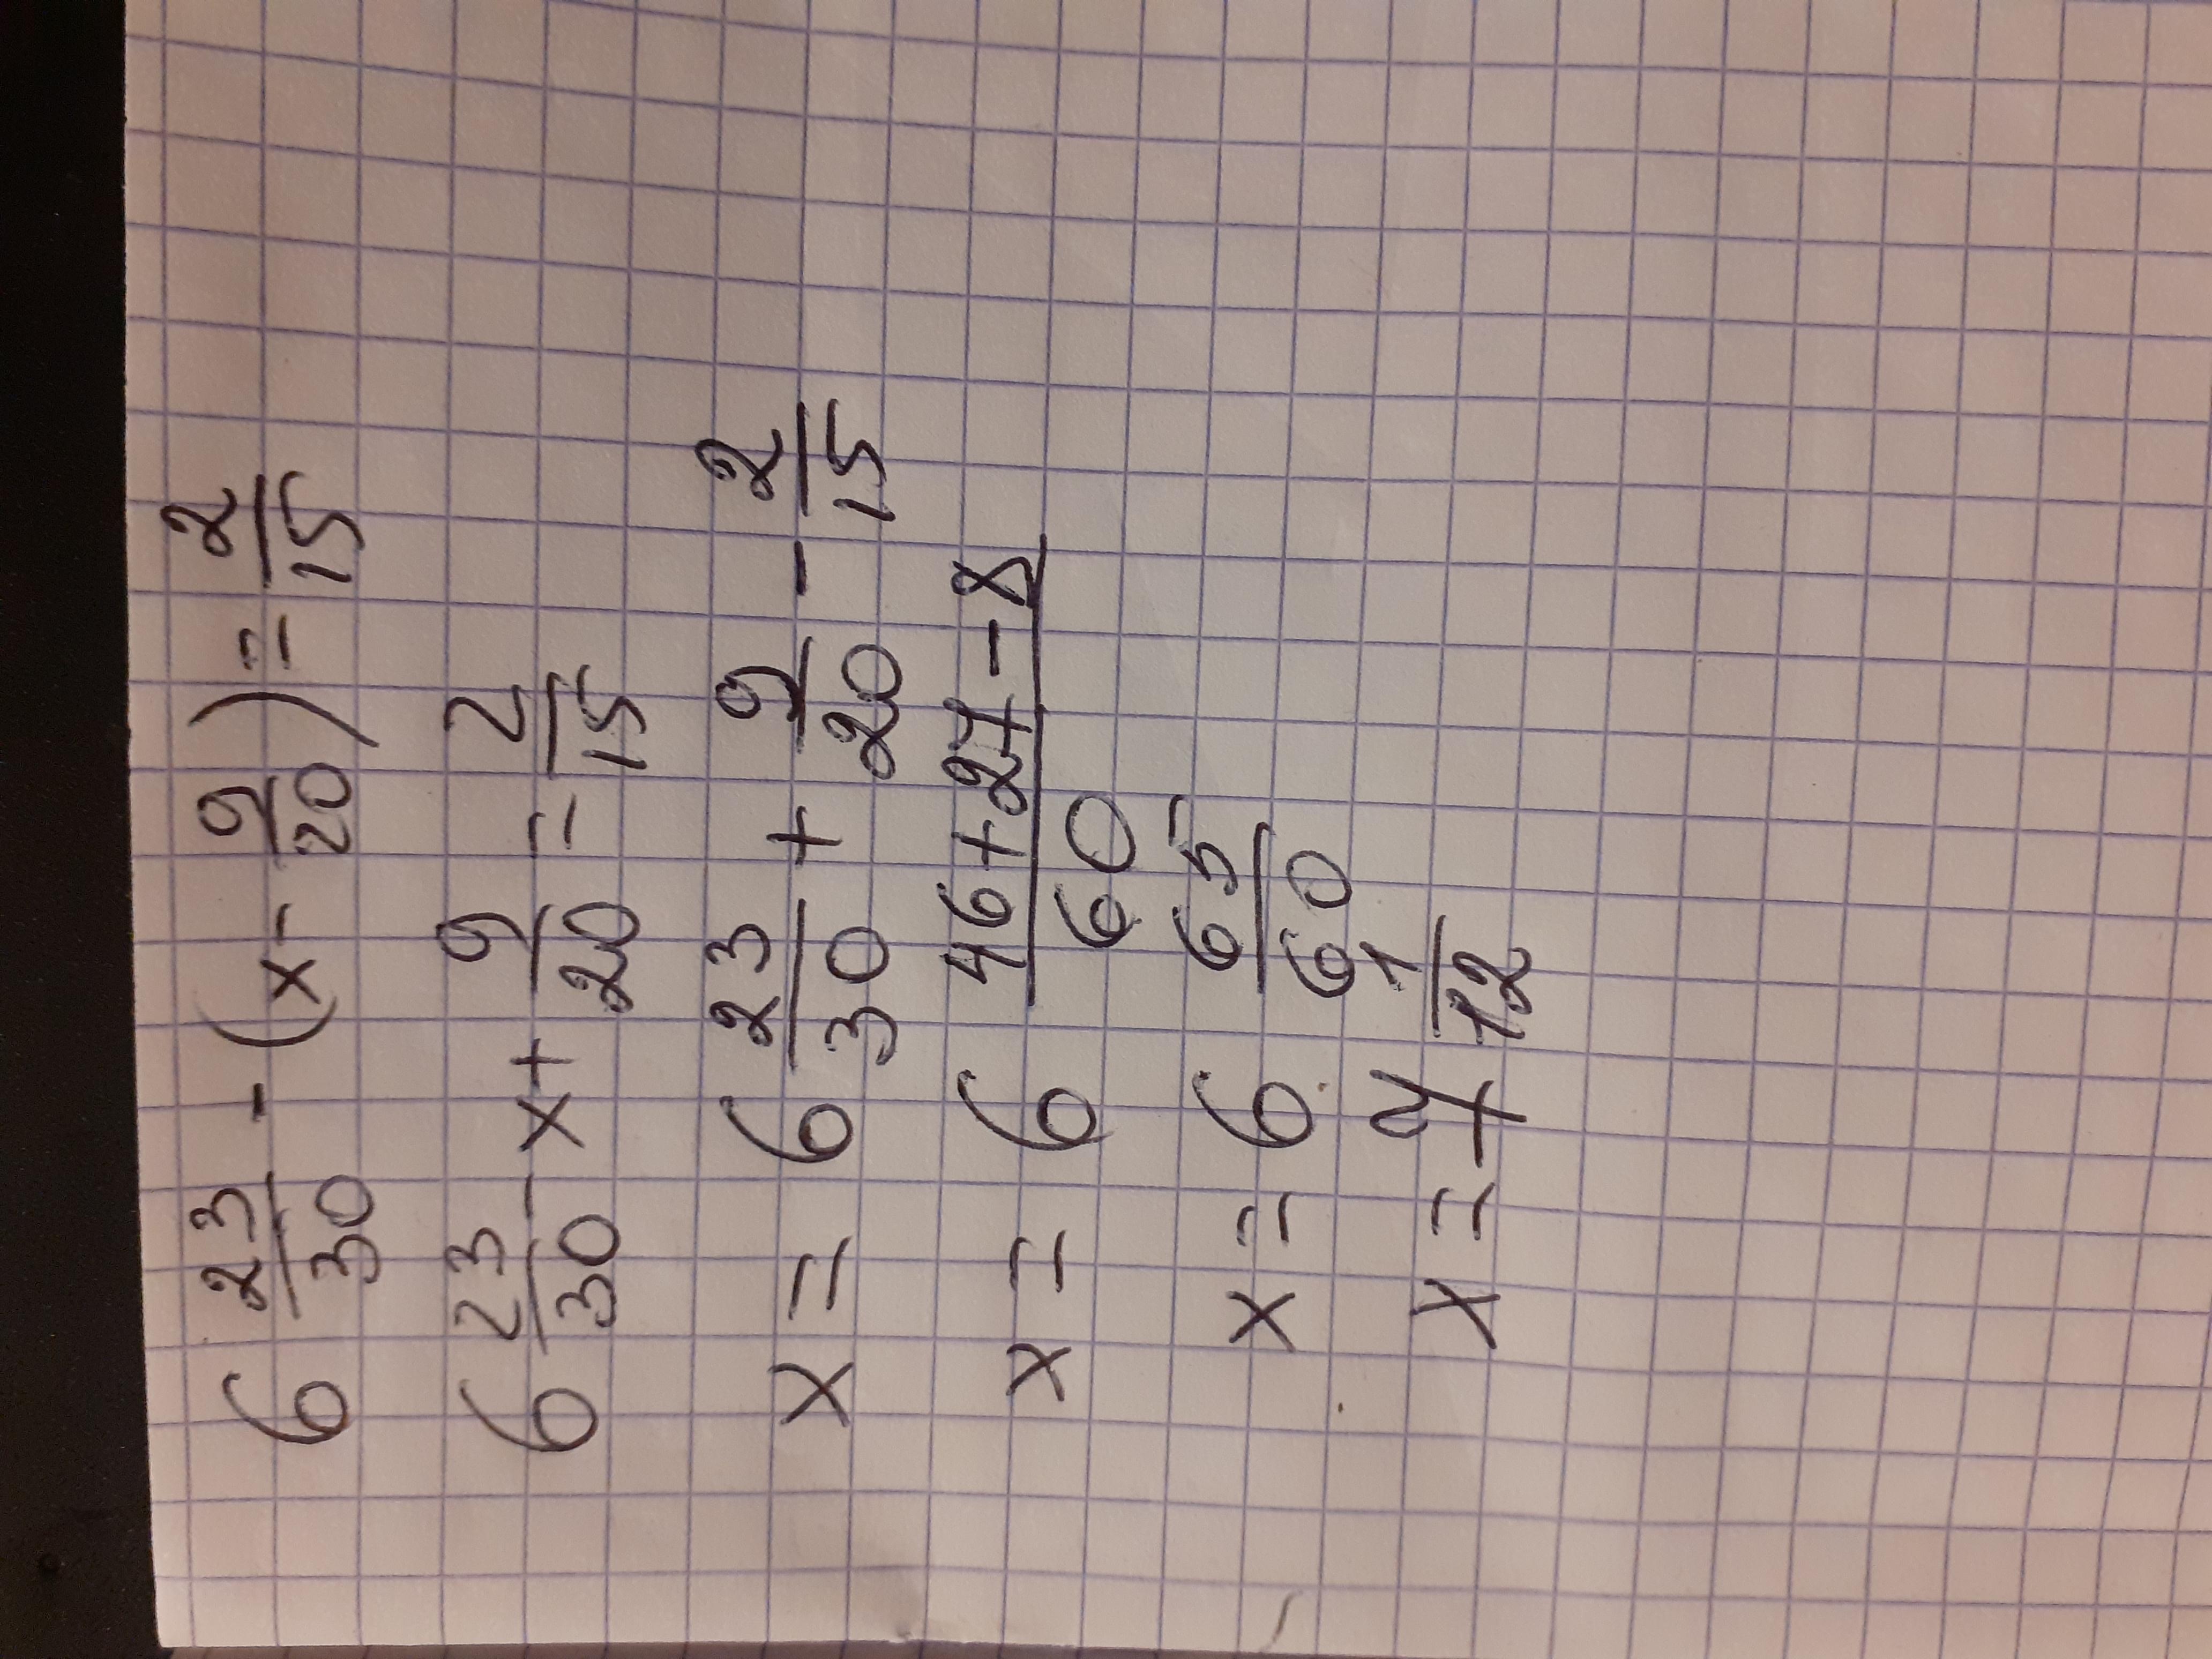 6 23/30 - (x - 9/20) = 2/15
6 23/30 - x + 9/20 = 2/15
x = 6 23/30 + 9/20 - 2/15
x = 6 (46+27-8)/60
x = 6 65/60
x = 7 1/12